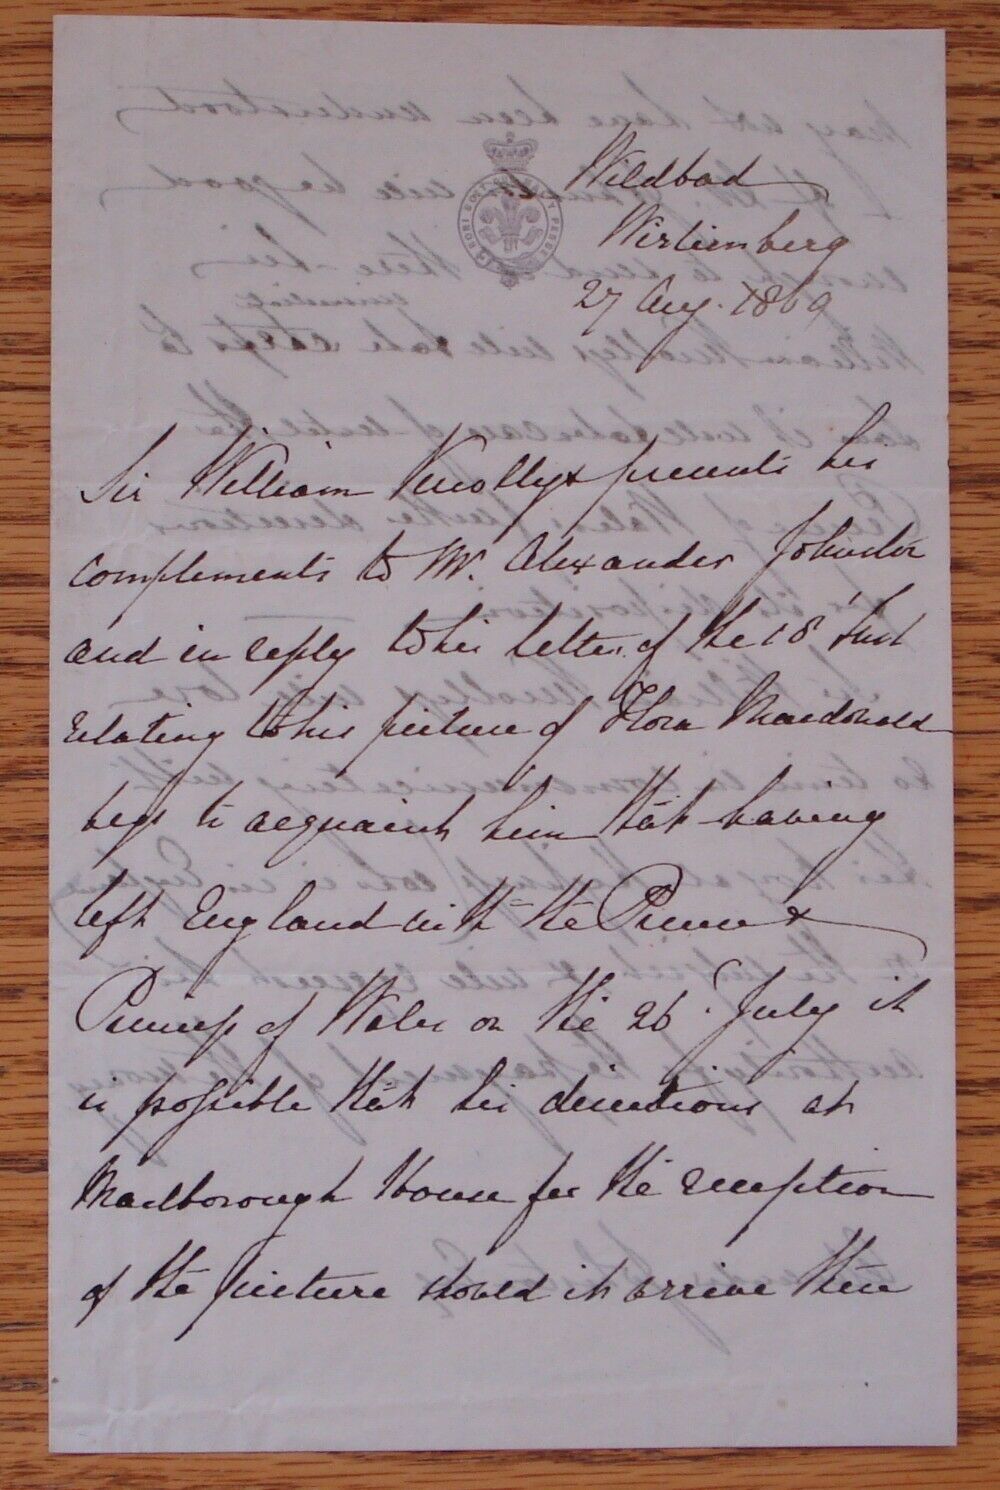 HONI SOIT QUI MAL Y PENSE
Wildbad
Wirtemberg
27 Aug. 1869
Sir William Knollys presents his
compliments to Mr. Alexander Johnston
and in reply to his letter of the 18' Inst
relating to his picture of Flora Macdonald
begs to acquaint him that having
left England with the Prince &
Princess of Wales on the 26 July it
is possible that his directions at
Marlborough House for the reception
of the picture should it arrive there